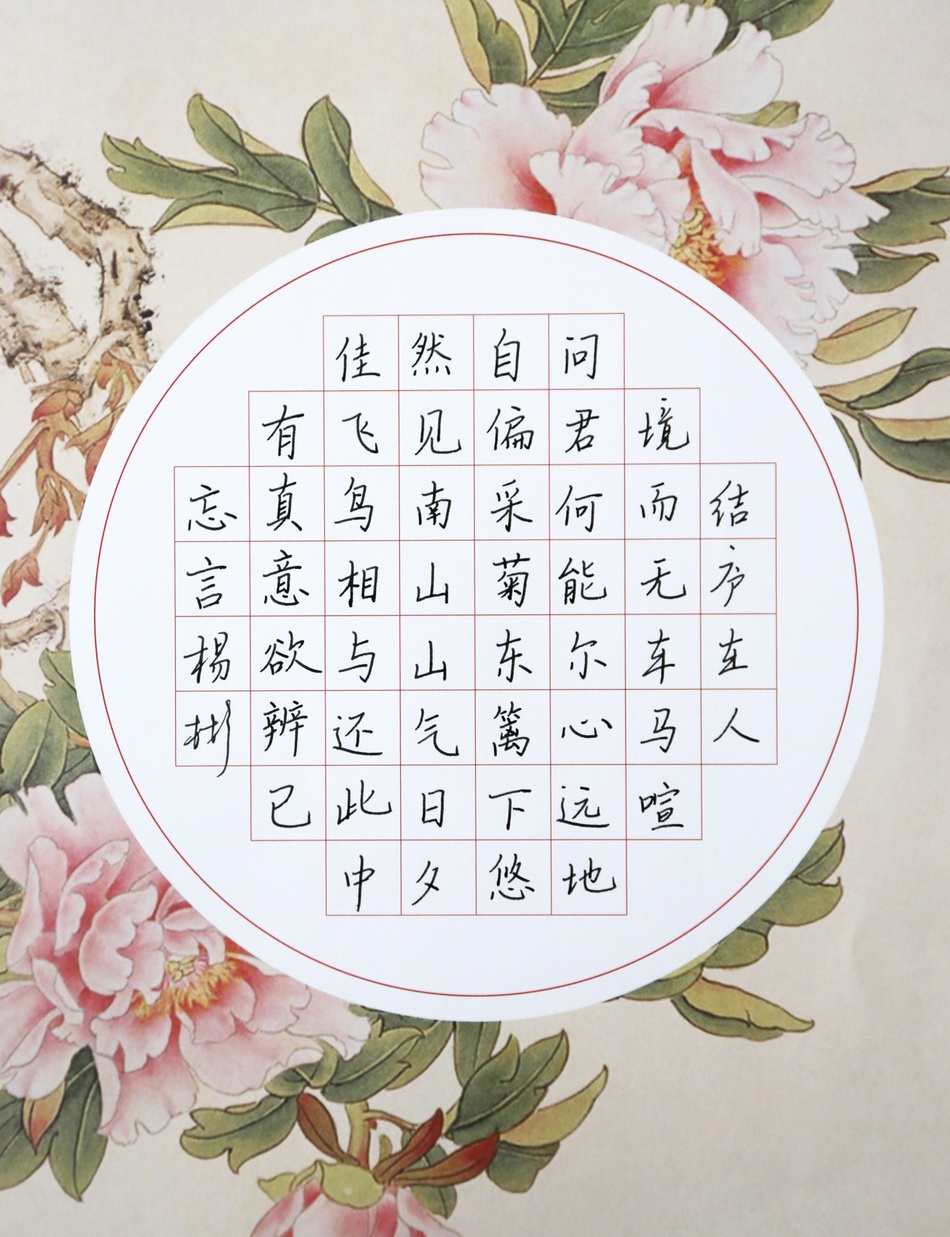 结庐在人
境而无车马喧
问君何能尔心远地
自偏采菊东篱下悠
然见南山山气日夕
佳飞鸟相与还此中
有真意欲辨已
忘言杨彬